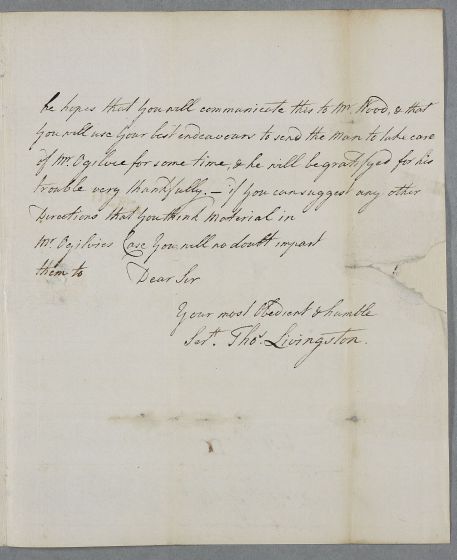 he hopes that you will communicate this to Mr. Wood, & that
you will use your best endeavours to send the man to take care
of Mr. Ogilvie for some time, & he will be gratifyed for his
trouble very thankfully. — if you can suggest any other
Directions that you think Material in
Mr. Ogilvies Case you will no doubt impart
them to Dear Sir
Your most Obedient & humble
Sert. Thos. Livingston.